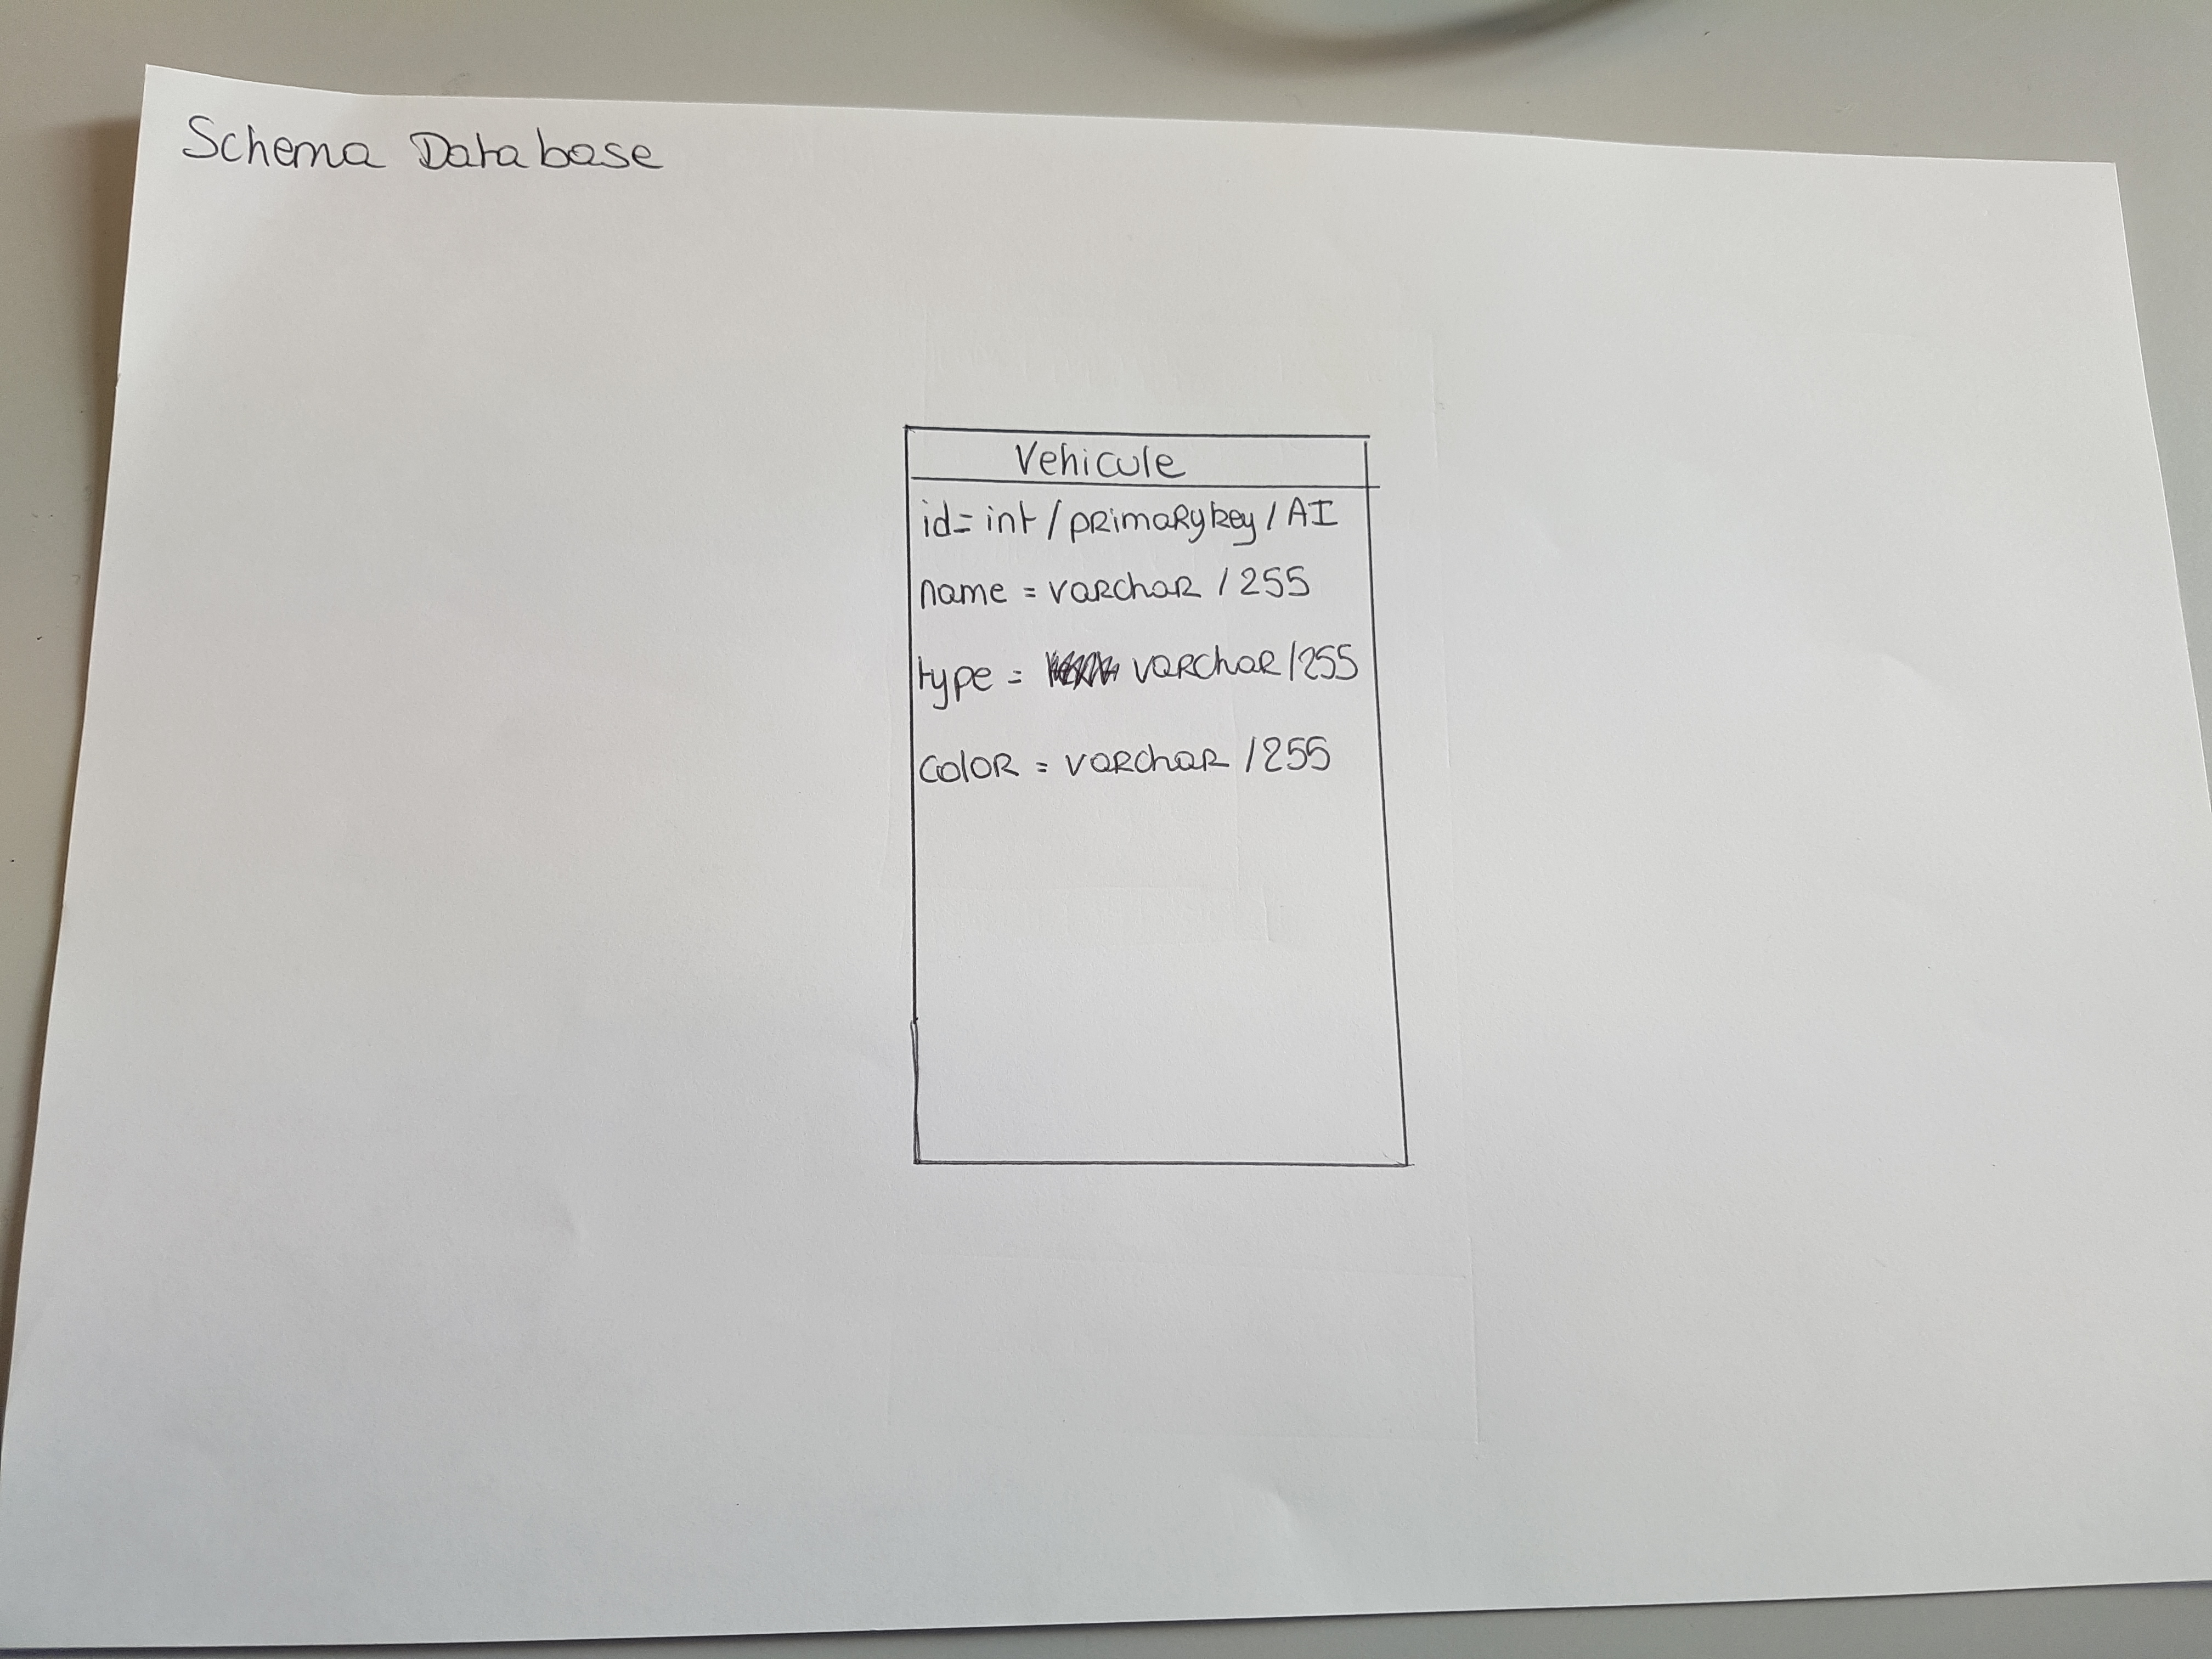 Schema Database
Vehicule
id= int / primary key / AI
name = varchar / 255
type = varchar / 255
color = varchar / 255